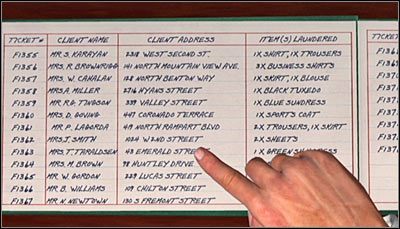 TICKET# CLIENT NAME CLIENT ADDRESS ITEM(S) LAUNDERED TICKET
F1355 MR. S. KARAYAN 2318 WEST SECOND ST. 1X SKIRT, 1X TROUSERS
F1356 MRS. R. BROWNRIGG 141 NORTH MOUNTAIN VIEW AVE. 3X BUSINESS SHIRTS
F1357 MRS. W. CANALAN 128 NORTH BENTON WAY 1X SKIRT, 1X BLOUSE
F1358 MRS A. MILLER 2716 HYANS STREET 1X BLACK TUXEDO
F1359 MR R.G. TINGSON 339 VALLEY STREET 1X BLUE SUNDRESS
F1360 MRS. D. GOVING 447 CORONADO TERRACE 1X SPORTS COAT
F1361 MR P. LAGORDA 49 NORTH RAMPART BLVD 2X TROUSERS, 1X SKIRT
F1362 MRS J. SMITH 1024 W 2ND STREET 2X SHEETS
F1363 MRS. T. THARALDSEN 43 EMERALD STREET 1X GREEN SUNDRESS
F1364 MRS. M. BROWN 98 HUNTLEY DRIVE
F1365 MR W. GORDON 229 LUCAS STREET
F1366 MR B. WILLIAMS 109 CHILTON STREET
F1367 MR N. NEWTOWN 130 S FREMONT STREET